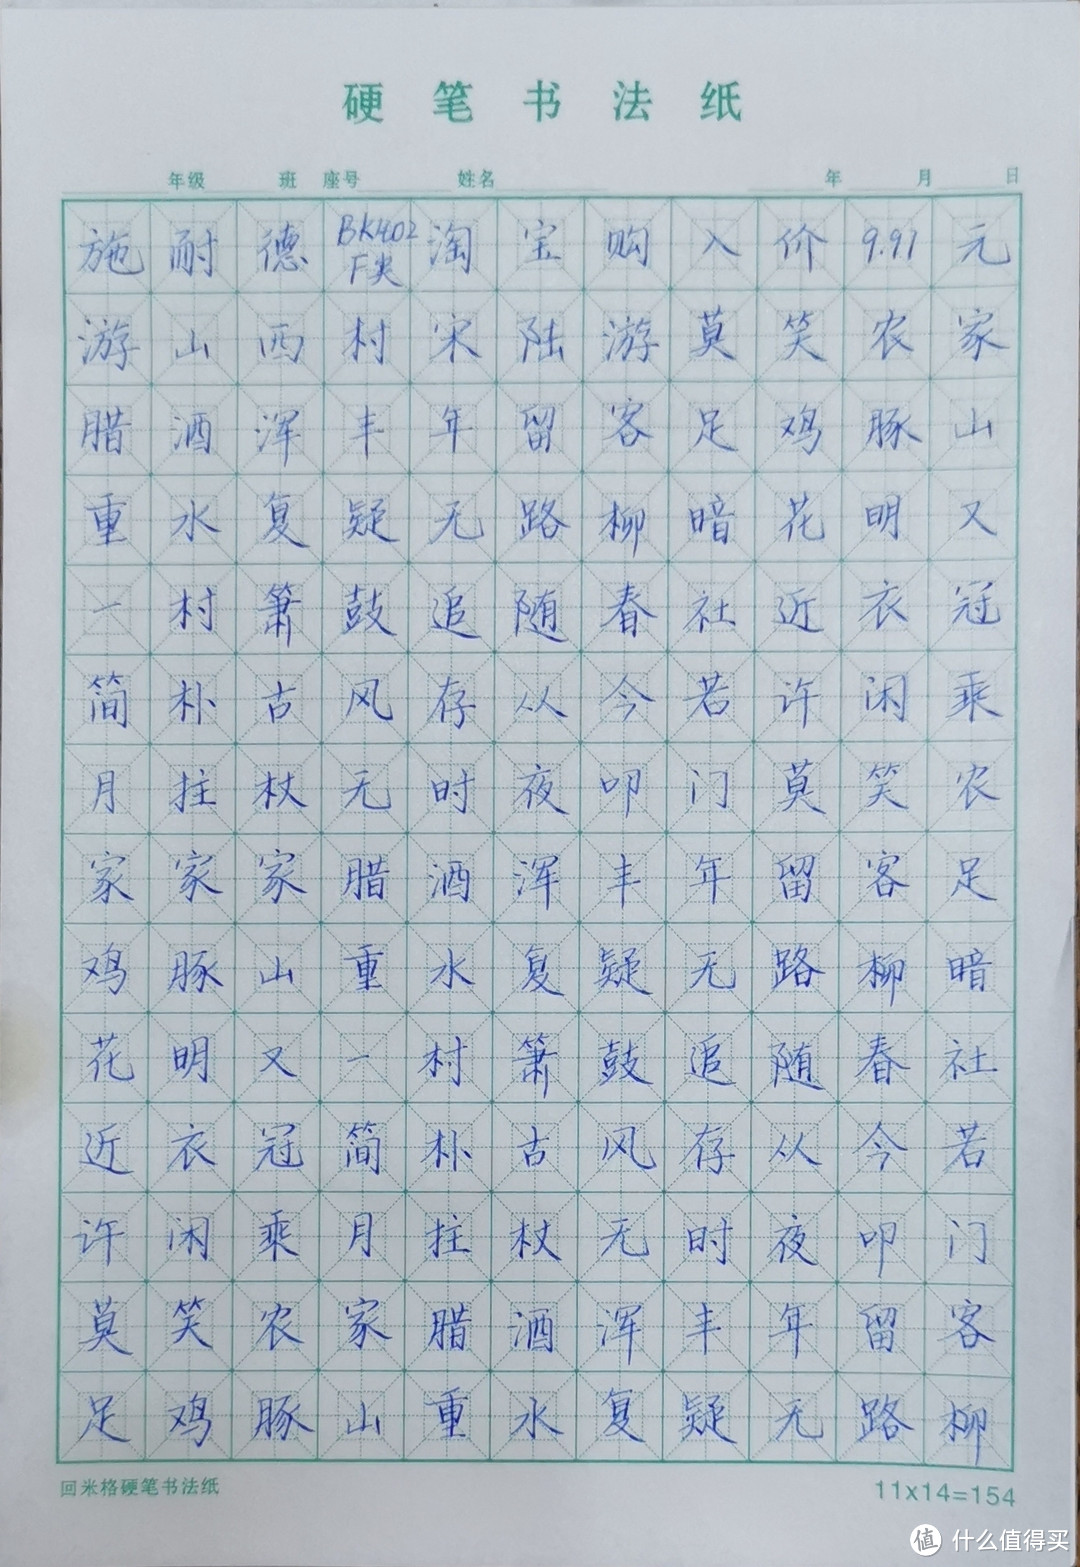 硬笔书法纸
年级 班 座号 姓名 年 月 日
施耐德BK402F尖淘宝购入价9.97元
游山西村宋陆游莫笑农家
腊酒浑丰年留客足鸡豚山
重水复疑无路柳暗花明又
一村箫鼓追随春社近衣冠
简朴古风存从今若许闲乘
月拄杖无时夜叩门莫笑农
家家家腊酒浑丰年留客足
鸡豚山重水复疑无路柳暗
花明又一村箫鼓追随春社
近衣冠简朴古风存从今若
许闲乘月拄杖无时夜叩门
莫笑农家腊酒浑丰年留客
足鸡豚山重水复疑无路柳
回米格硬笔书法纸 11x14=154
值 什么值得买